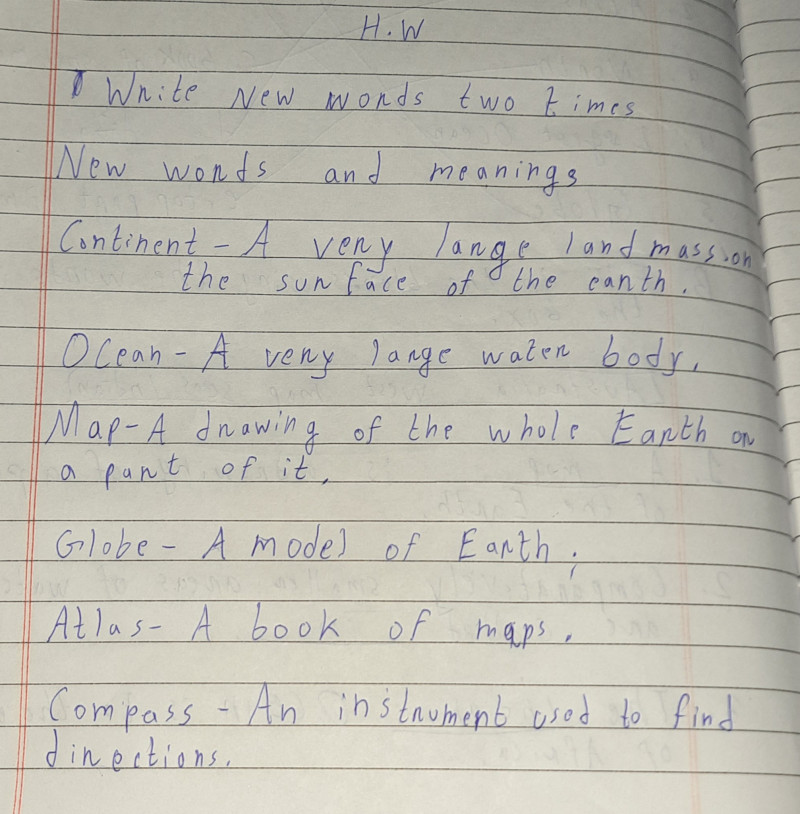 H.W
Write New words two times
New words and meanings
Continent - A very large landmass on
the surface of the earth.
Ocean - A very large water body.
Map - A drawing of the whole Earth or
a part of it.
Globe - A model of Earth.
Atlas - A book of maps.
Compass - An instrument used to find
directions.